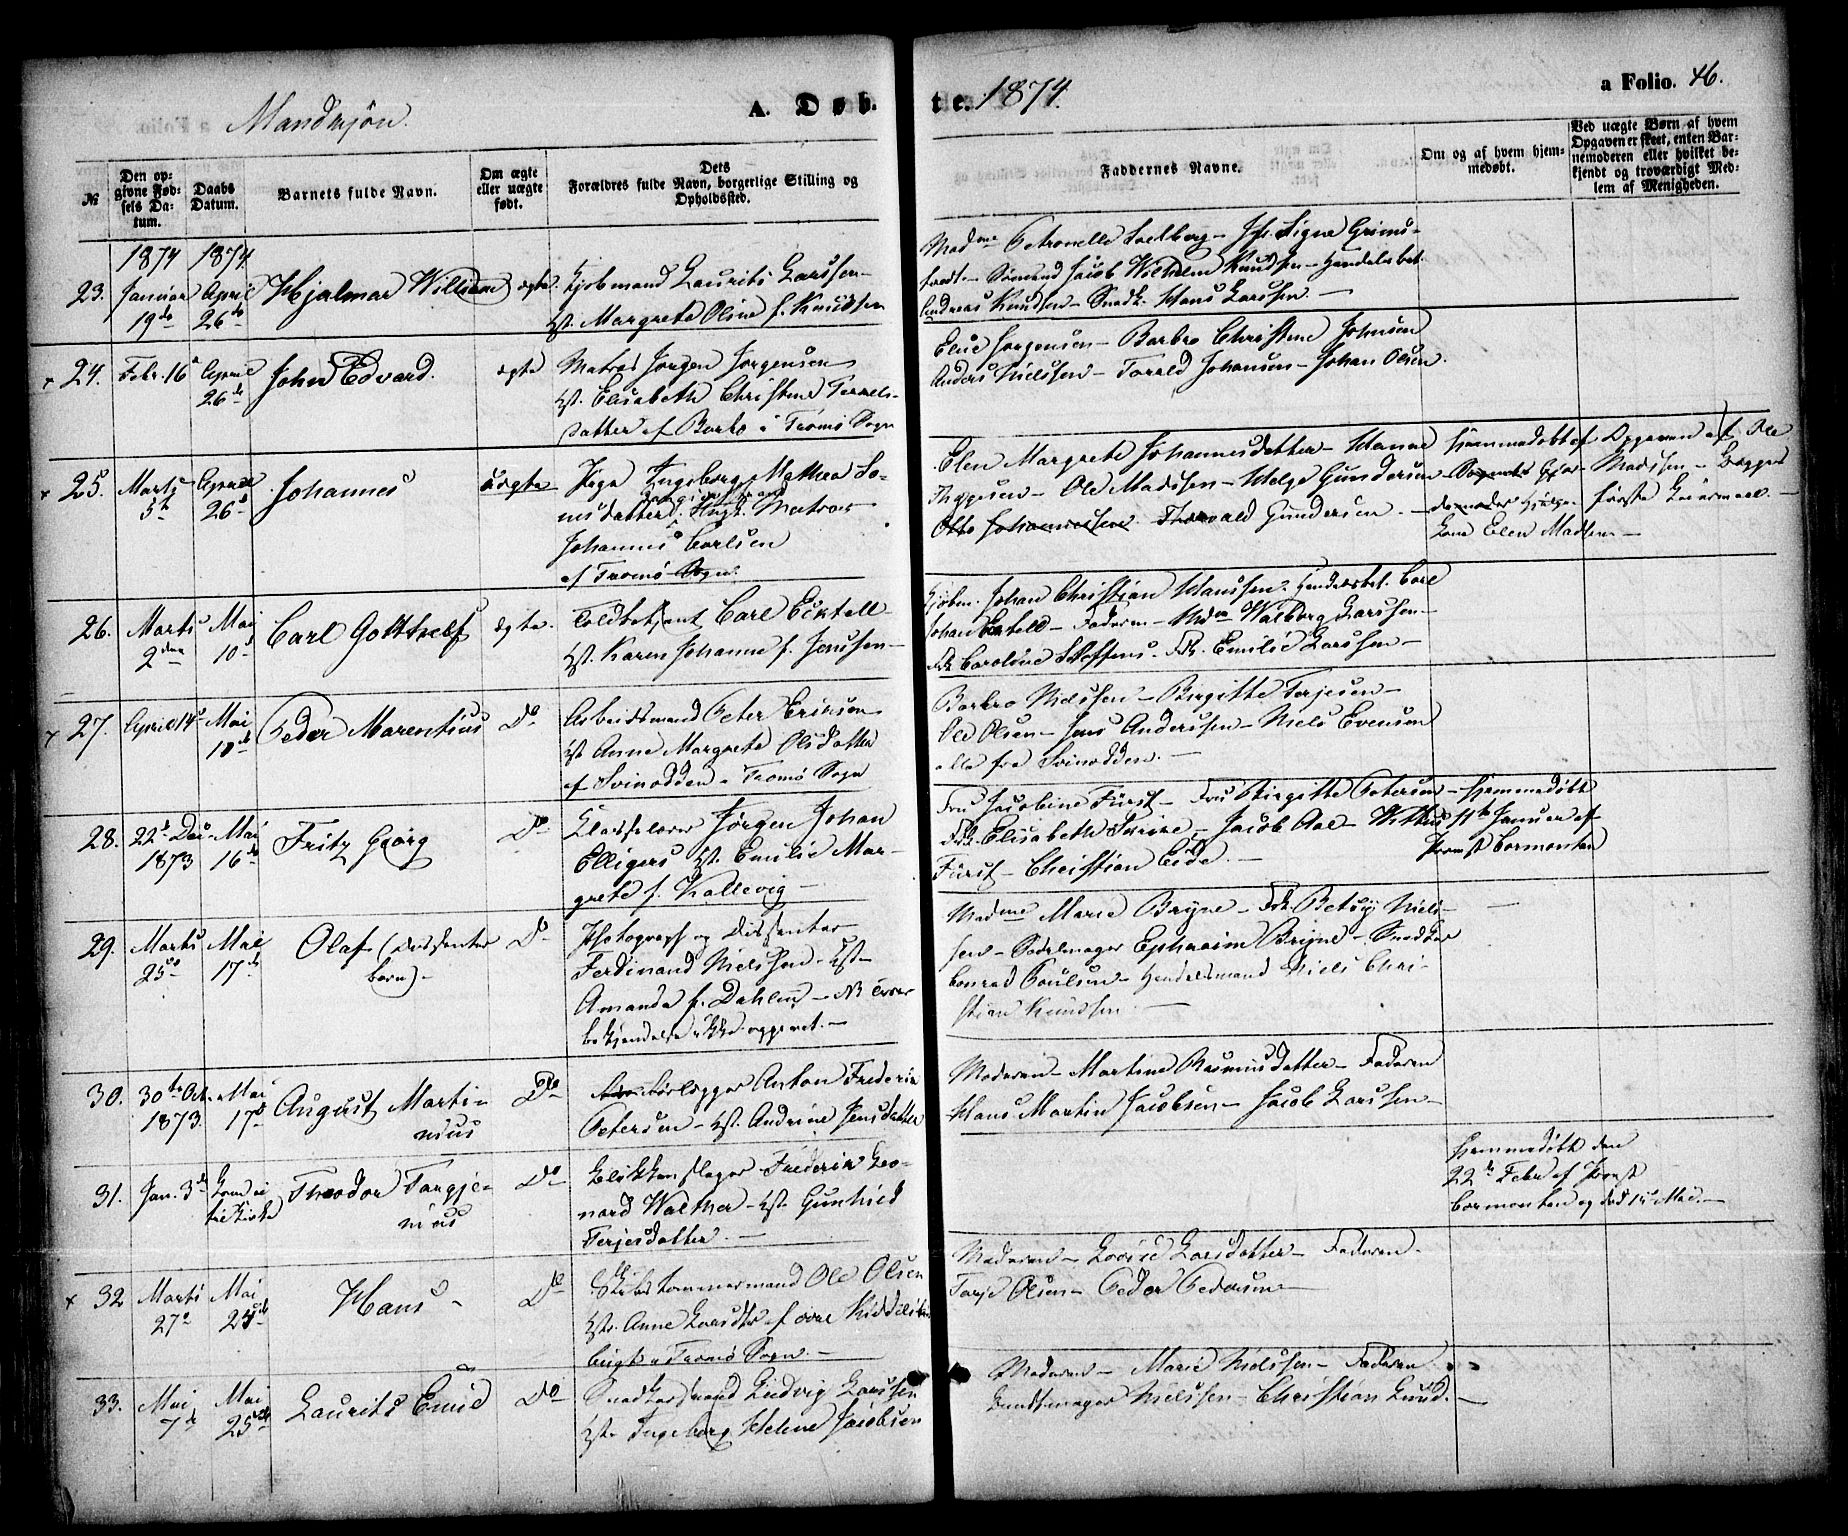 Mandkjøn.
A. Døb-
te. 1874.
a Folio. 46.
№
Den op-
givne Fød-
sels Da-
tum.
Daabs
Datum.
Barnets fulde Navn.
Om ægte
eller uægte
født.
Dets
Forældres fulde Navn, borgerlige Stilling og
Opholdssted.
Faddernes Navne.
Om og af hvem hjem-
medøbt.
Ved uægte Børn af hvem
Opgaven er skeet, enten Bar-
nemoderen eller hvilket be-
kjendt og troværdigt Med-
lem af Menigheden.
1874 1874
23. Januar 19de April 26de Hjalmar William ægte Kjøbmand Laurits Larssen
Hst. Margrete Oline f. Knudsen
Madme Petronelle Soelberg – Jfr. Signe Grims-
stad – Sømand Jacob Wilhelm Knudsen – Handelsbet.
Andreas Knudsen – Snedk. Hans Larssen. –
× 24. Febr. 16 April 26de John Edvard. ægte Matros Jørgen Jørgensen
Hst. Elisabeth Christine Terkels-
datter af Barbo i Tromø Sogn
Elise Jørgensen – Barbro Christine Johnsen
Anders Nielssen – Torald Johansen – Johan Olsen
× 25. Marts 5te April 26de Johannes uægte Pige Ingeborg Mathea
datter. Ungk. Matros
Johannes Carlsen
af Tromø Sogn.
Elen Margrete Johannesdatter – Hanne
Thygesen – Ole Madssen – Helge Gundersen
Otto Johannessen. Thorvald Gundersen. –
Hjemmedøbt af
Elen Madsen –
Opgaven af Ole
Madssen – Begges
første Leiermaal. –
26. Marts 2den Mai 10de Carl Gotthelf ægte. Toldbetjent Carl Ecktell
Hst. Karen Johanne f. Jenssen –
Kjøbm. Johan Christian Hanssen. Handelsbet. Carl
Johan Ectell – Faderen – Mdm Walborg Larssen –
Frk. Caroline Steffens. Frk. Emilie Larssen –
× 27. April 14de Mai 10de Peder Marentius Do Arbeidsmand Peter Eriksen
Hst Anne Margrete Olsdatter
af Svinodden i Tromø Sogn
Barbro Nielssen – Birgitte Terjesen –
Ole Olsen – Jens Anderssen – Niels Evensen
alle fra Svinodden. –
28. 22de Dec 1873 Mai 16de Fritz Georg Do Klasselærer Jørgen Johan
Elligers Hst. Emilie Mar-
grete f. Kallevig –
Fru Jacobine Fürst – Fru Birgitte Petersen –
Frk. Elisabeth – Jacob Aal –
Fürst – Christian Eide. –
Hjemmedøbt
Januar af
Provst Cormontan
29. Marts 25de Mai 17de Olaf (Dissenter
barn) – Do Photograph og Dissenter
Ferdinand Nielssen – Hst –
Amanda f. Dahlen – NB Troes-
bekjendelse ikke opgivet. –
Madme Marie Bryne – Frk. Betsy Niels-
sen – Sadelmager Ephraim Bryne – Snedker
Conrad Poulsen – Handelsmand Niels Chri-
stian Knudsen –
30. 30te Oct. 1873. Mai 17de August Marti-
nius Do Anton Frederik
Petersen – Hst. Andrine Jensdatter
Moderen – Martine Rasmusdatter – Faderen
Hans Martin Jacobsen – Jacob Larssen –
31. Jan. 3de Theodor Torgje-
nius Do Blikkenslager Frederik Leo-
nard Walther – Hst. Gunhild
Terjesdatter. –
Hjemmedøbt den
22de Febr af Provst
Cormontan og død 15de Mai. –
× 32 Marts 27de Mai 25de Hans – Do Skibstømmermand Ole Olsen
Hst. Anne Larsdtr af øvre
bugt i Tromø Sogn. –
Moderen – Lovise Larsdatter – Faderen –
Terje Olsen – Peder Pedersen –
33. Mai 7de Mai 25de Laurits Emil Do Snedkersvend Ludvig Larssen
Hst. Ingeborg Helene Jacobsen
Moderen – Marie Nielssen – Faderen
Buntmager Nielssen – Christian Lund. –